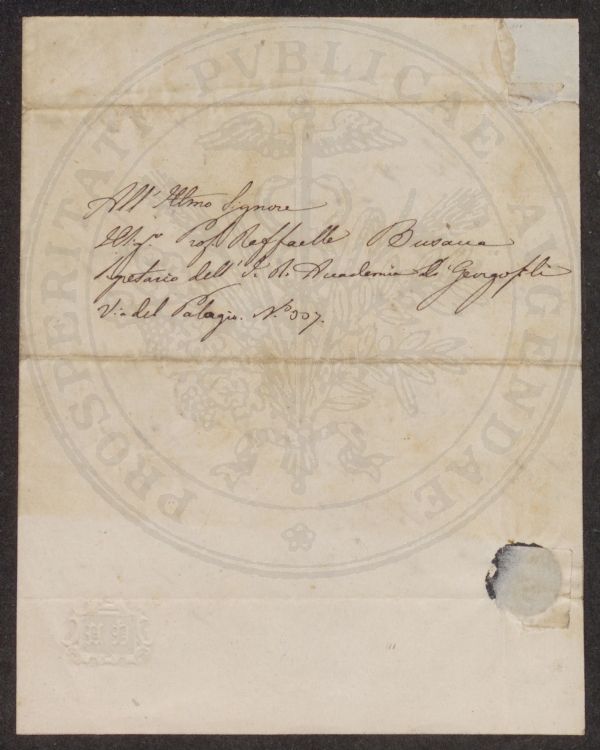 PROSPERITATI PVBLICAE AVGENDAE
All' Illmo Signore
Il Sigr. Prof. Raffaelle Busacca
Segretario dell' I. R. Accademia de' Georgofili
Via del Palagio. No. 337.